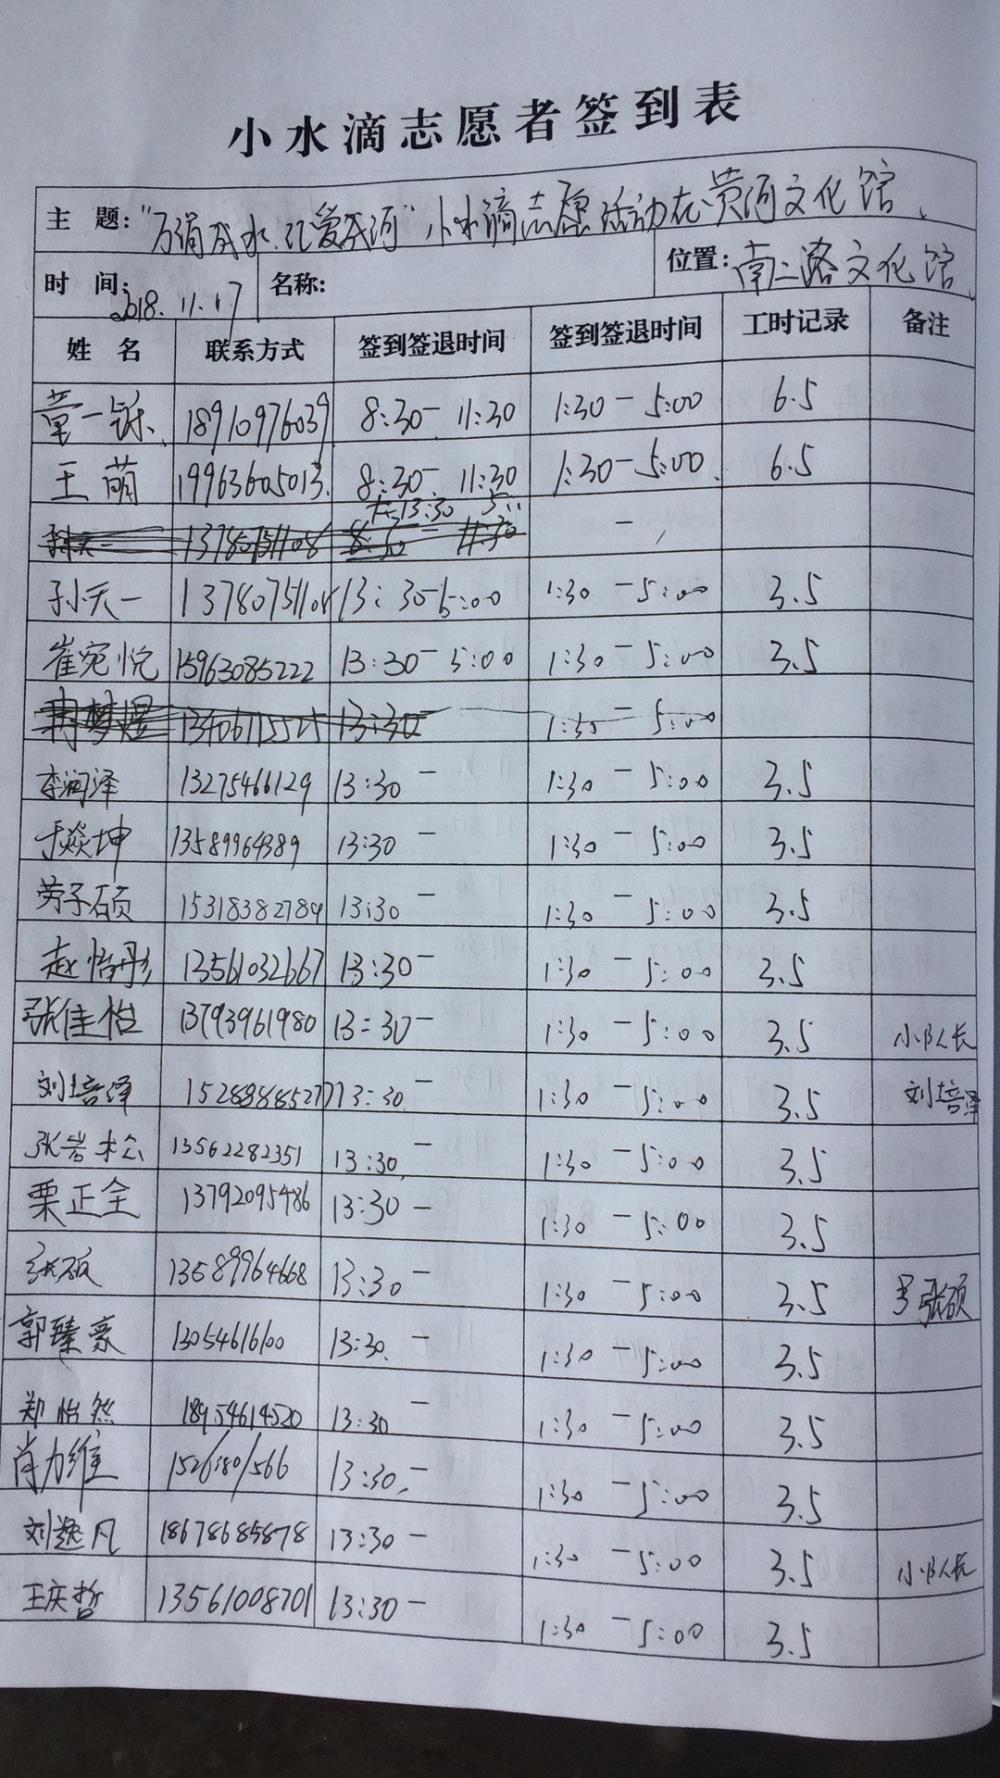 小水滴志愿者签到表
主 题: "万涓成水 汇爱成河" 小水滴志愿活动在黄河文化馆
时 间: 2018.11.17 名称: 位置: 南二路文化馆
姓 名 联系方式 签到签退时间 签到签退时间 工时记录 备注
董一铄 18910976039 8:30- 11:30 1:30-5:00 6.5
王萌 19963605013 8:30- 11:30 1:30-5:00 6.5
13:30
孙天一 13:30-5:00 1:30-5:00 3.5
崔宛悦 15963085222 13:30-5:00 1:30-5:00 3.5
13:30 1:30-5:00
李润泽 13275466129 13:30- 1:30-5:00 3.5
于焱坤 13589964389 13:30- 1:30-5:00 3.5
劳子硕 15318382789 13:30- 1:30-5:00 3.5
赵怡彤 13561032667 13:30- 1:30-5:00 3.5
张佳怡 13793961980 13:30- 1:30-5:00 3.5 小队长
刘培泽 15288885277 13:30- 1:30-5:00 3.5 刘培泽
张岩松 13562282351 13:30- 1:30-5:00 3.5
栗正全 13792095486 13:30- 1:30-5:00 3.5
张硕 13589964668 13:30- 1:30-5:00 3.5 张硕
郭臻豪 13054616100 13:30- 1:30-5:00 3.5
郑怡然 18954614520 13:30- 1:30-5:00 3.5
肖力维 13:30- 1:30-5:00 3.5
刘逸凡 18678685878 13:30- 1:30-5:00 3.5 小队长
王庆哲 13561008701 13:30- 1:30-5:00 3.5